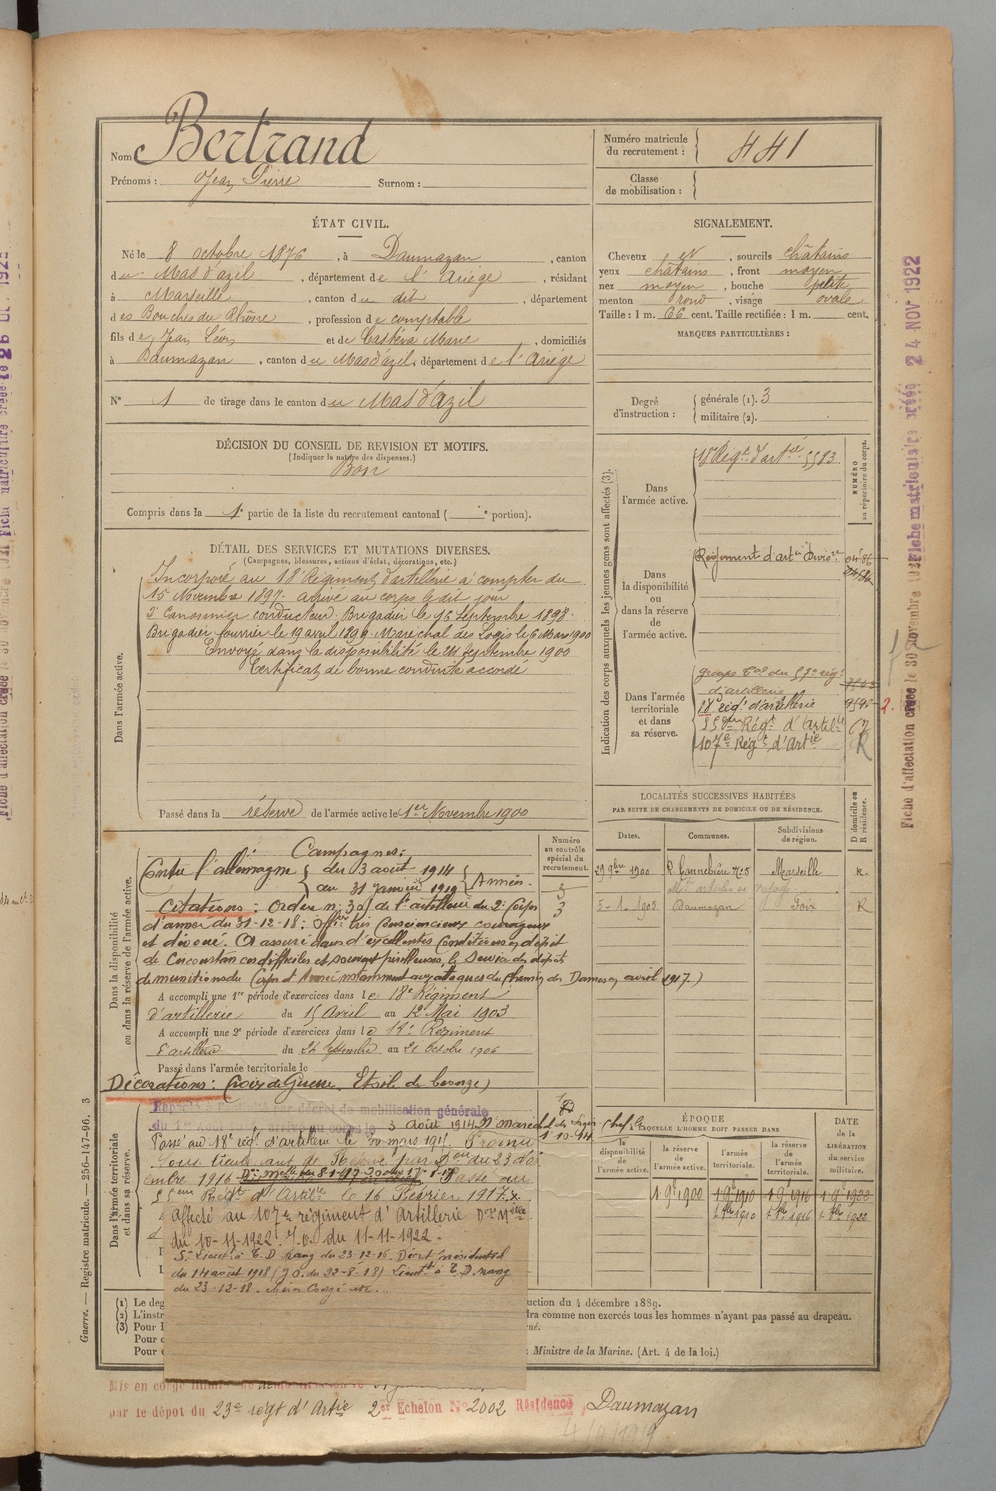 Nom Bertrand
Prénoms : Jean Pierre Surnom :
Numéro matricule du recrutement : 441
Classe de mobilisation :
ÉTAT CIVIL.
Né le 8 octobre 1876, à Daumazan, canton
du Mas d'azil, département de l'Ariège, résidant
à Marseille, canton du dit, département
des Bouches du Rhône, profession de comptable
fils de Jean Léon et de Castéra Marie, domiciliés
à Daumazan, canton du Mas d'azil, département de l'Ariège
N° 1 de tirage dans le canton du Mas d'azil
SIGNALEMENT.
Cheveux et, sourcils châtains
yeux châtains, front moyen
nez moyen, bouche petite
menton rond, visage ovale
Taille : 1 m. 66 cent. Taille rectifiée : 1 m. cent.
MARQUES PARTICULIÈRES :
Degré d'instruction : générale (1). 3
militaire (2).
DÉCISION DU CONSEIL DE REVISION ET MOTIFS.
(Indiquer la nature des dispenses.)
Bon
Compris dans la 1e partie de la liste du recrutement cantonal ( e portion).
DÉTAIL DES SERVICES ET MUTATIONS DIVERSES.
(Campagnes, blessures, actions d'éclat, décorations, etc.)
Dans l'armée active.
Incorporé au 18e Régiment d'artillerie à compter du
15 Novembre 1897. arrivé au corps le dit jour
2e Canonnier conducteur, Brigadier le 16 Septembre 1898.
Brigadier fourrier le 19 avril 1899. Maréchal des Logis le 6 Mars 1900
Envoyé dans la disponibilité le 24 Septembre 1900
Certificat de bonne conduite accordé
Passé dans la réserve de l'armée active le 1er Novembre 1900
Indication des corps auxquels les jeunes gens sont affectés (3).
NUMÉRO au répertoire du corps.
Dans l'armée active.
18e Régt d'artie 5583
Dans la disponibilité ou dans la réserve de l'armée active.
Régiment d'artie Divisre
Dans l'armée territoriale et dans sa réserve.
groupe tal du 57e rég.
d'artillerie
18e rég. d'artillerie
55ème Régt d'Artilie
107e Régt d'Artie
R
LOCALITÉS SUCCESSIVES HABITÉES
PAR SUITE DE CHANGEMENTS DE DOMICILE OU DE RÉSIDENCE.
Dates. Communes. Subdivisions de région. D domicile ou R résidence.
29 9bre 1900 R. Cannebière Marseille R.
5-1-1905 Daumazan Foix R
Numéro au contrôle spécial du recrutement.
3
Dans la disponibilité ou dans la réserve de l'armée active.
Campagnes :
Contre l'allemagne du 3 août 1914
au 31 janvier 1919
Citations : Ordre n° 30 de l'artillerie du 2e Corps
d'armée du 31-12-18 : Offier très consciencieux courageux
et dévoué. A assuré dans d'excellentes conditions en dépit
de circonstances difficiles et souvent périlleuses, le service des dépôt
de munitions du Corps d'Armée notamment aux attaques du Chemin des Dames en avril 1917.)
A accompli une 1re période d'exercices dans le 18e Régiment
d'artillerie du 15 Avril au 12 Mai 1903
A accompli une 2e période d'exercices dans le 18e Régiment
d'artillerie du 24 Septembre au 21 Octobre 1906
Passé dans l'armée territoriale le
Décorations : Croix de Guerre. Etoile de bronze)
Dans l'armée territoriale et dans sa réserve.
Rappelé à l'activité par décret de mobilisation générale
du 1er Août arrivé au corps le 3 août 1914. Nommé maréchal des logis chef le
1-10-14
Passé au 18e régt d'artillerie le mars 1915. Promu
sous lieutenant de Réserve par Don du 23 décembre
1916. Passé au
55ème Régt d'Artilie le 16 Février 1917.
Affecté au 107e régiment d'Artillerie Don Mielle
du 10-11-1922. J.O. du 11-11-1922.
S. Lieutt à T.D rang du 23-12-16. Décret présidentiel
du 14 août 1918 (J.O. du 22-8-18) Lieutt à T.D. rang
du 23-12-18.
ÉPOQUE
À LAQUELLE L'HOMME DOIT PASSER DANS
la disponibilité de l'armée active. la réserve de l'armée active. l'armée territoriale. la réserve de l'armée territoriale.
DATE DE LA LIBÉRATION du service militaire.
1 9e 1900 1 9e 1910 1 9e 1916 1 9e 1922
(1) Le deg
(2) L'instr
(3) Pour l
Pour c
Pour c
uction du 4 décembre 1889.
dra comme non exercés tous les hommes n'ayant pas passé au drapeau.
né.
Ministre de la Marine. (Art. 4 de la loi.)
Mis en congé illimité de démobilisation le
par le dépôt du 23e regt d'Artie 2e Echelon N° 2002 Résidence Daumazan
4/11/1919
Guerre. — Registre matricule. — 256-147-96. 3
Fiche d'affectation créée le 30 Novembre
Fiche matriculaire créée 24 NOV 1922